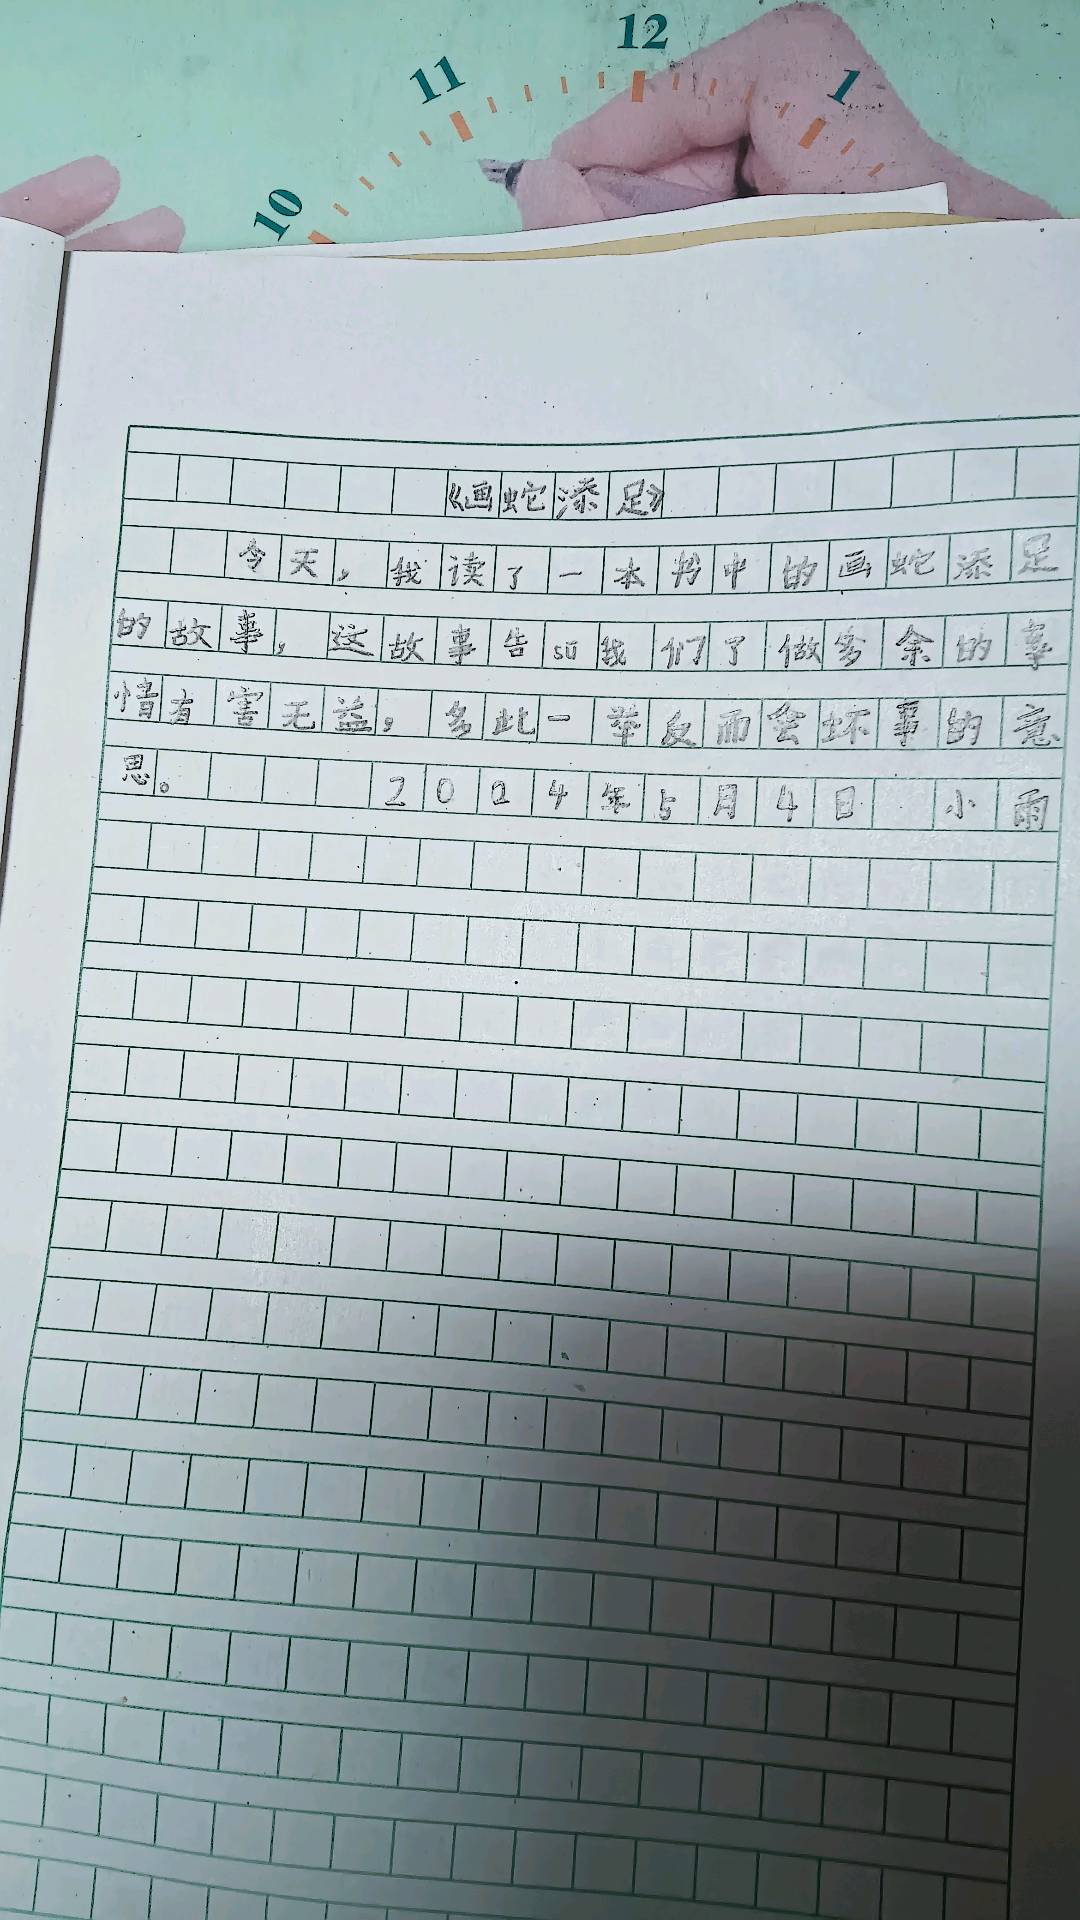 12
11
1
10
《画蛇添足》
今天，我读了一本书中的画蛇添足
的故事，这故事告sù我们了做多余的事
情有害无益，多此一举反而会坏事的意
思。 2024年5月4日 小雨